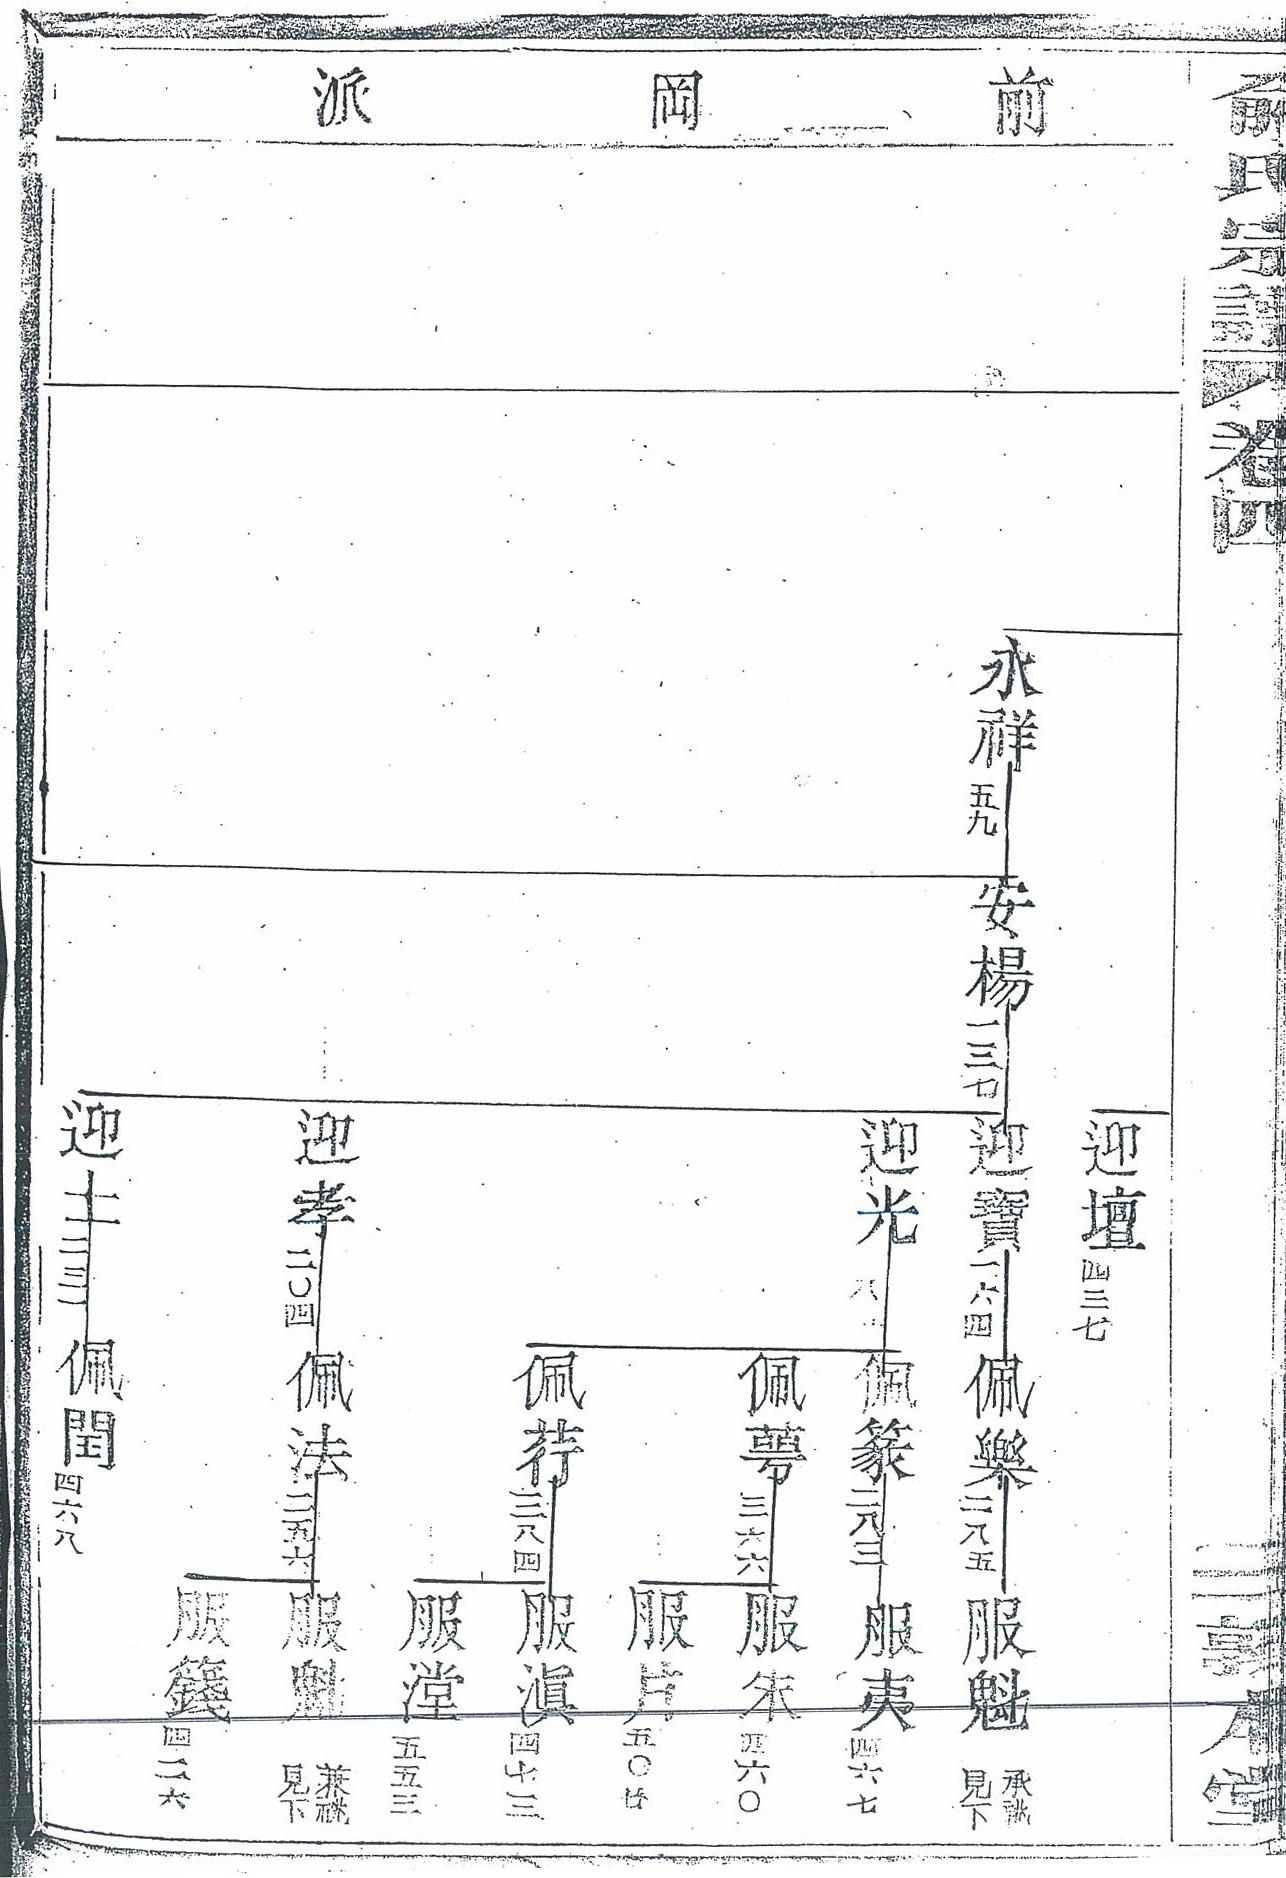 俞氏宗譜
卷四
三
敦本堂
前岡派
永祥
五九
安楊
一三七
迎壇
四三七
迎寶
一六四
佩樂
二八五
服魁
承祧
見下
迎光
佩篆
二八三
服夷
四六七
佩萼
三六六
服朱
四六〇
服片
五〇
佩荇
三八四
服滇
四七三
服漟
五五三
迎孝
二〇四
佩法
二五六
服魁
兼祧
見下
服籛
四二六
迎士
二三一
佩閏
四六八